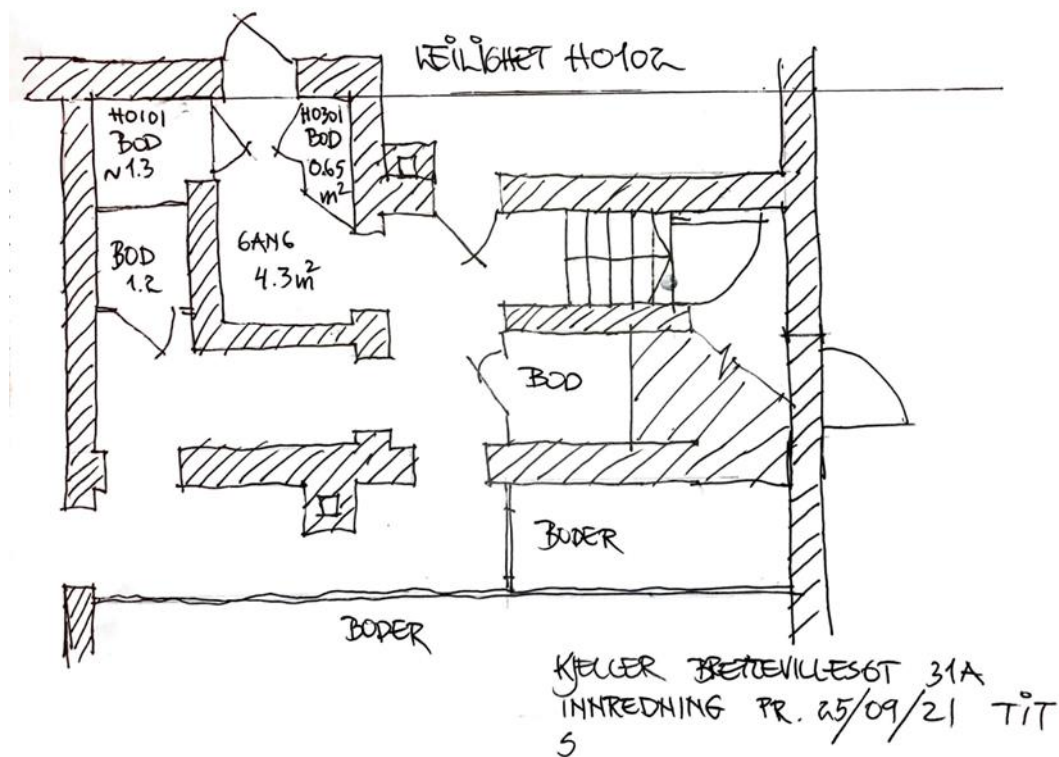 LEILIGHET H0102
H0101
BOD
~1.3
H0301
BOD
0.65
m²
BOD
1.2
GANG
4.3m²
BOD
BODER
BODER
KJELLER BRETTEVILLESGT 31A
INNREDNING PR. 25/09/21 TIT
S